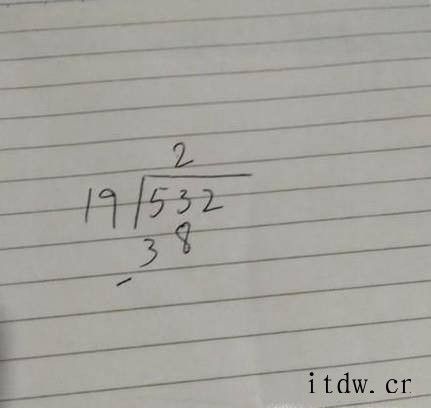 2
19 532
38
-
itdw.cr